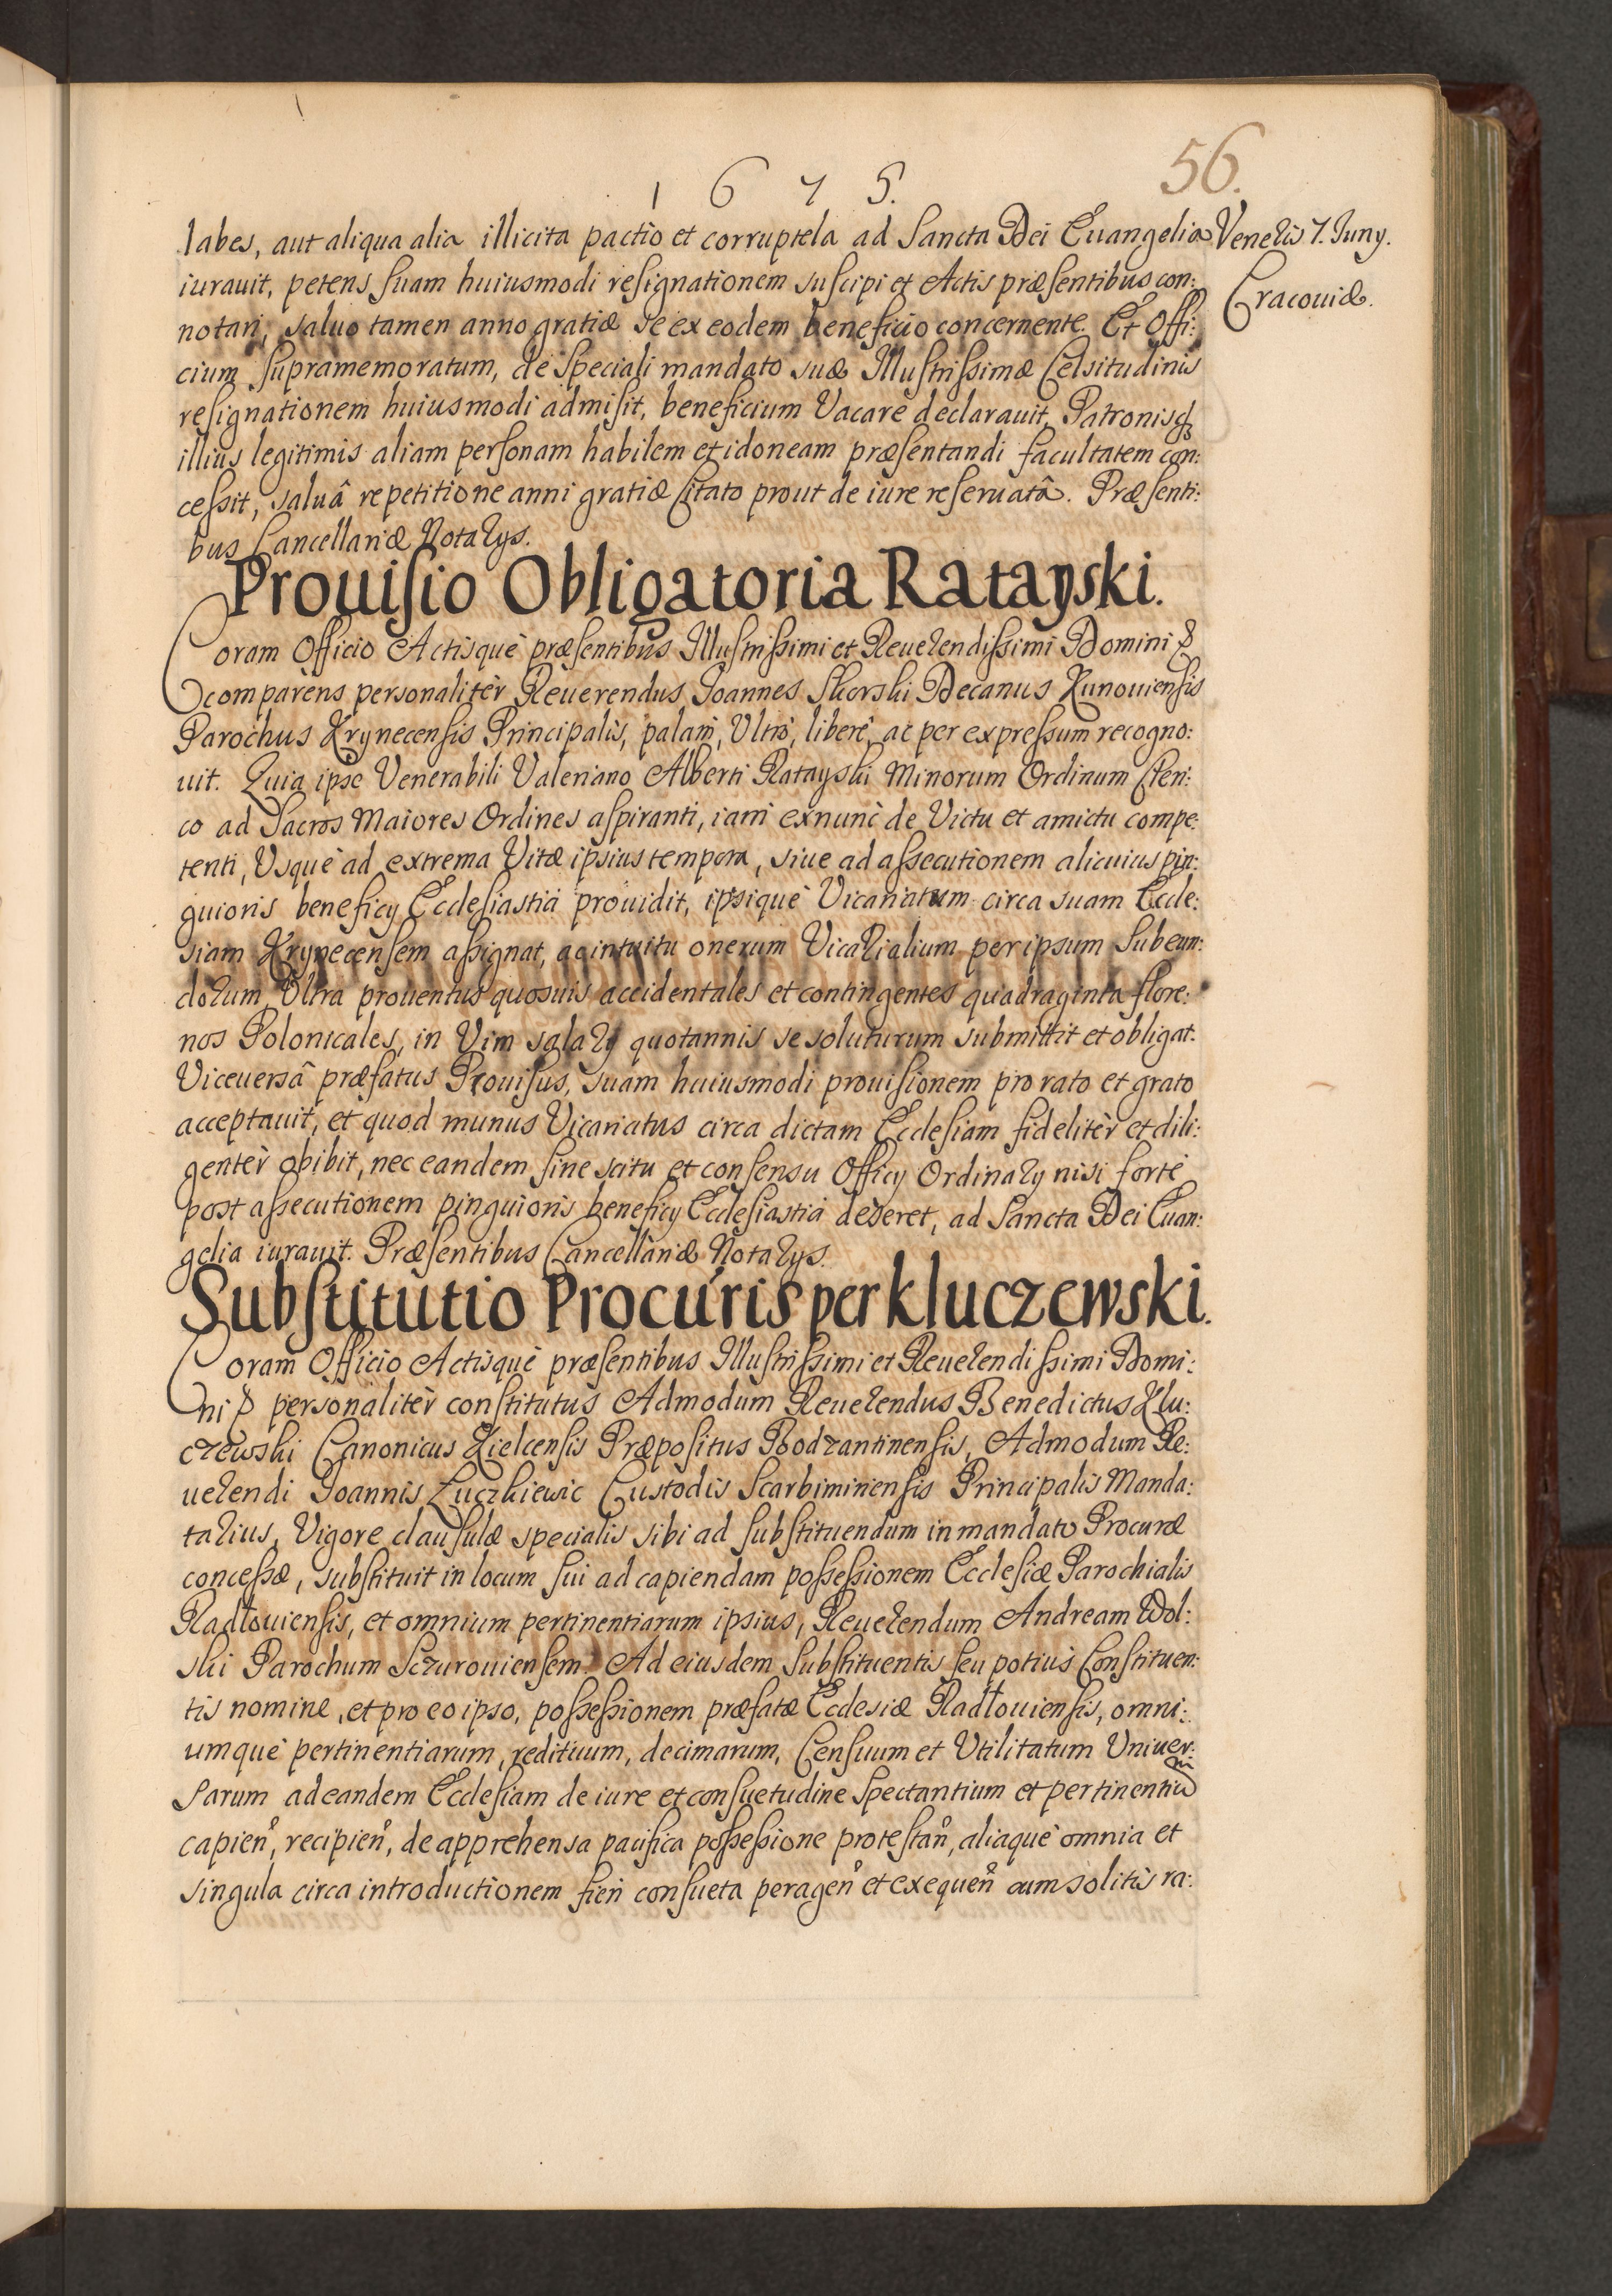 56.
1 6 7 5.
labes, aut aliqua alia illicita pactio et corruptela ad Sancta Dei Euangelia
Veneris 7. Iuny.
Cracouiæ.
iurauit, petens suam huiusmodi resignationem suscipi et Actis præsentibus con:
notari, saluo tamen anno gratiæ se ex eodem beneficio concernente. Et Offi:
cium supramemoratum, de speciali mandato suæ Illustrissimæ Celsitudinis
resignationem huiusmodi admisit, beneficium Vacare declarauit, Patronisq
illius legitimis aliam personam habilem et idoneam præsentandi facultatem con:
cessit, saluâ repetitione anni gratiæ Citato prout de iure reseruatâ. Præsenti:
bus Cancellariæ Notarys.
Prouisio Obligatoria Ratayski.
Coram Officio Actisquè præsentibus Illustrissimi et Reuerendissimi Domini &
comparens personalitèr Reuerendus Ioannes Skorski Decanus Kunouiensis
Parochus Krynecensis Principalis, palam, Ultrò, liberè, ac per expressum recogno:
uit. Quia ipse Venerabili Valeriano Alberti Ratayski Minorum Ordinum Cleri:
co ad Sacros Maiores Ordines aspiranti, iam exnunc de Victu et amictu compe:
tenti, Usquè ad extrema Vitæ ipsius tempora, siue ad assecutionem alicuius pin:
guioris beneficy Ecclesiastici prouidit, ipsiquè Vicariatum circa suam Eccle:
siam Krynecensem assignat, ac intuitu onerum Vicarialium per ipsum Subeun:
dorum, Ultra prouentus quosuis accidentales et contingentes quadraginta flore:
nos Polonicales, in Vim salary quotannis se soluturum submittit et obligat.
Viceuersâ præfatus Prouisus, suam huiusmodi prouisionem pro rato et grato
acceptauit, et quod munus Vicariatus circa dictam Ecclesiam fidelitèr et dili:
gentèr obibit, nec eandem sine scitu et consensu Officy Ordinary nisi fortè
post assecutionem pinguioris beneficy Ecclesiastici deseret, ad Sancta Dei Euan:
gelia iurauit. Præsentibus Cancellariæ Notarys.
Substitutio Procuris per Kluczewski.
Coram Officio Actisquè præsentibus Illustrissimi et Reuerendissimi Domi:
ni & personalitèr constitutus Admodum Reuerendus Benedictus Klu:
czewski Canonicus Kielcensis Præpositus Bodzantinensis, Admodum Re:
uerendi Ioannis Zuczkiewic Custodis Scarbiminensis Principalis Manda:
tarius, Vigore clausulæ specialis sibi ad substituendum in mandato Procuræ
concessæ, substituit in locum sui ad capiendam possessionem Ecclesiæ Parochialis
Radłouiensis, et omnium pertinentiarum ipsius, Reuerendum Andream Wol:
ski Parochum Sczurouiensem. Ad eiusdem Substituentis seu potius Constituen:
tis nomine, et pro eo ipso, possessionem præfatæ Ecclesiæ Radłouiensis, omni:
umquè pertinentiarum, redituum, decimarum, Censuum et Utilitatum Uniuer:
sarum ad eandem Ecclesiam de iure et consuetudine spectantium et pertinentiu
capien, recipien, de apprehensa pacifica possessione protestan, aliaquè omnia et
singula circa introductionem fieri consueta peragen et exequen cum solitis ra: